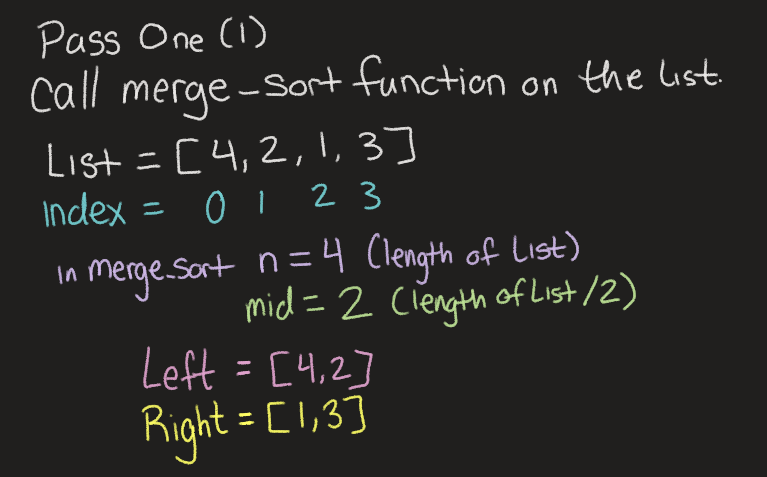 Pass One (1)
Call merge-sort function on the list.
List = [4, 2, 1, 3]
Index = 0 1 2 3
in merge_sort n = 4 (length of list)
mid = 2 (length of list/2)
Left = [4,2]
Right = [1,3]